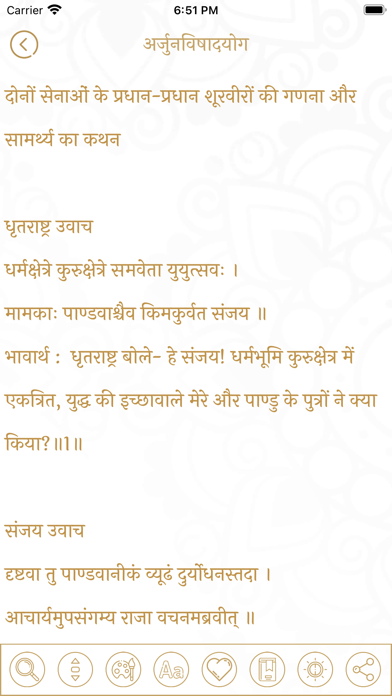 Carrier 6:51 PM
अर्जुनविषादयोग
दोनों सेनाओं के प्रधान-प्रधान शूरवीरों की गणना और
सामर्थ्य का कथन
धृतराष्ट्र उवाच
धर्मक्षेत्रे कुरुक्षेत्रे समवेता युयुत्सवः ।
मामकाः पाण्डवाश्चैव किमकुर्वत संजय ॥
भावार्थ : धृतराष्ट्र बोले- हे संजय! धर्मभूमि कुरुक्षेत्र में
एकत्रित, युद्ध की इच्छावाले मेरे और पाण्डु के पुत्रों ने क्या
किया?॥1॥
संजय उवाच
दृष्टवा तु पाण्डवानीकं व्यूढं दुर्योधनस्तदा ।
आचार्यमुपसंगम्य राजा वचनमब्रवीत् ॥
Aa